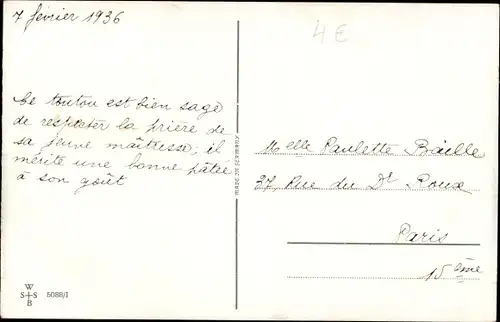 7 février 1936
4 E
Ce toutou est bien sage
de respecter la prière de
sa jeune maîtresse, il
mérite une bonne pâtée
à son goût
MADE IN GERMANY
Melle Paulette Baille
37, Rue du Dr Roux
Paris
15ème
W
S S
B
5088/1